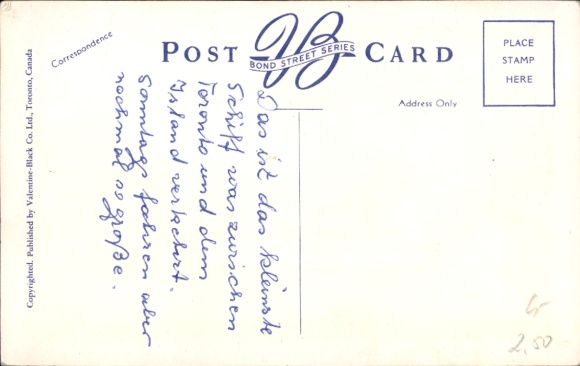 Correspondence
POST CARD
VB
BOND STREET SERIES
PLACE
STAMP
HERE
Address Only
Copyrighted. Published by Valentine-Black Co. Ltd., Toronto, Canada
Das ist das kleinste
Schiff was zwischen
Toronto und dem
Island verkehrt.
Sonntags fahren aber
nochmal so große.
2,50